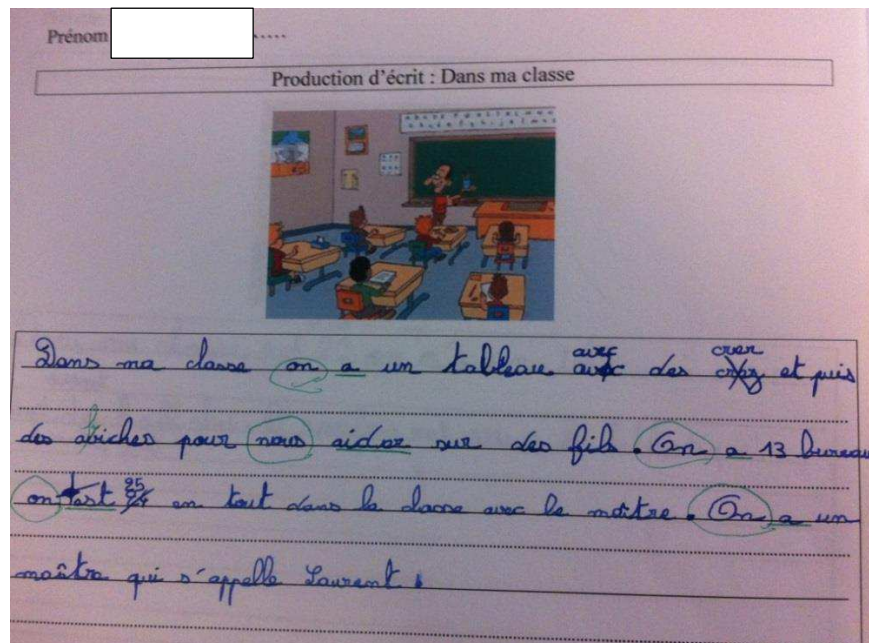 Prénom .....
Production d'écrit : Dans ma classe
Dans ma classe on a un tableau avec des et puis
des afiches pour nous aider sur des fils. On a 13 bureau
on est 25 en tout dans la classe avec le maître. On a un
maître qui s'appelle Laurent.